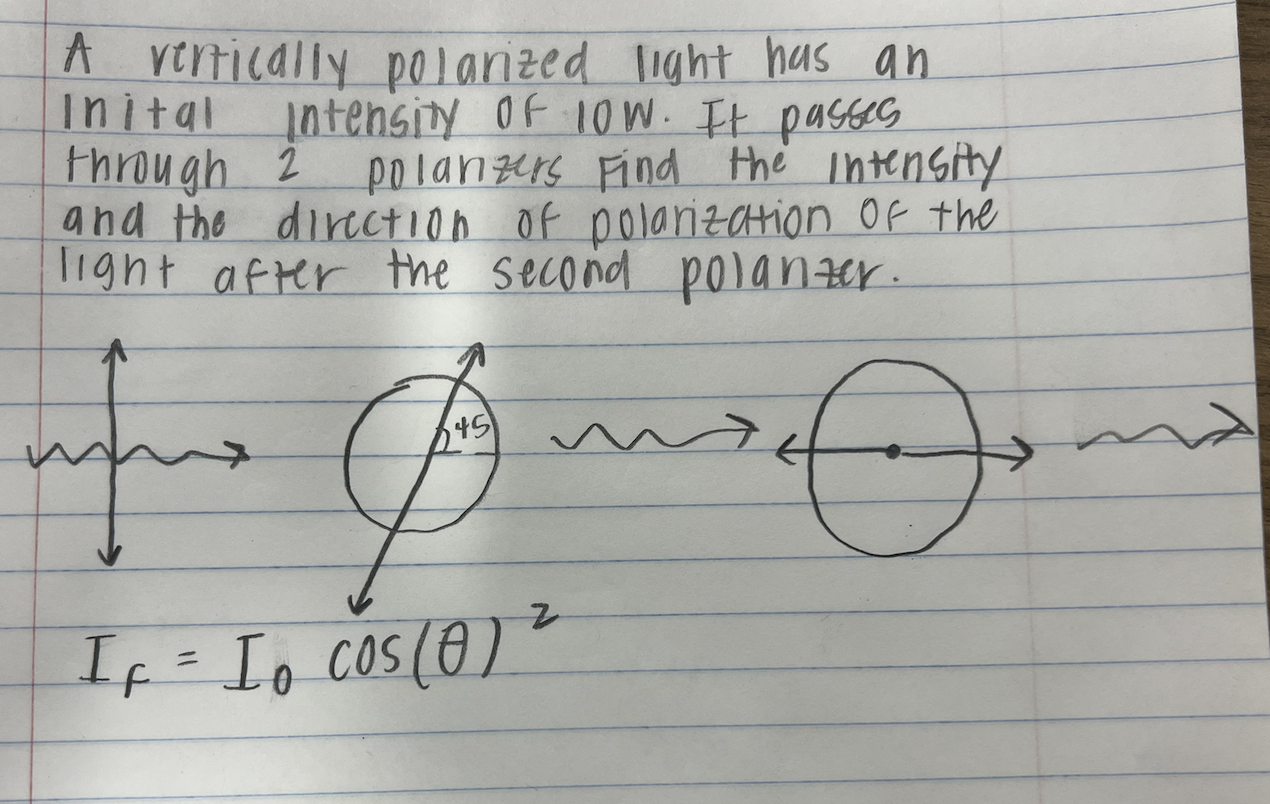 A vertically polarized light has an
Inital intensity of 10W. It passes
through 2 polarizers Find the intensity
and the direction of polarization of the
light after the second polarizer.
45
I_F = I_0 cos(θ)²